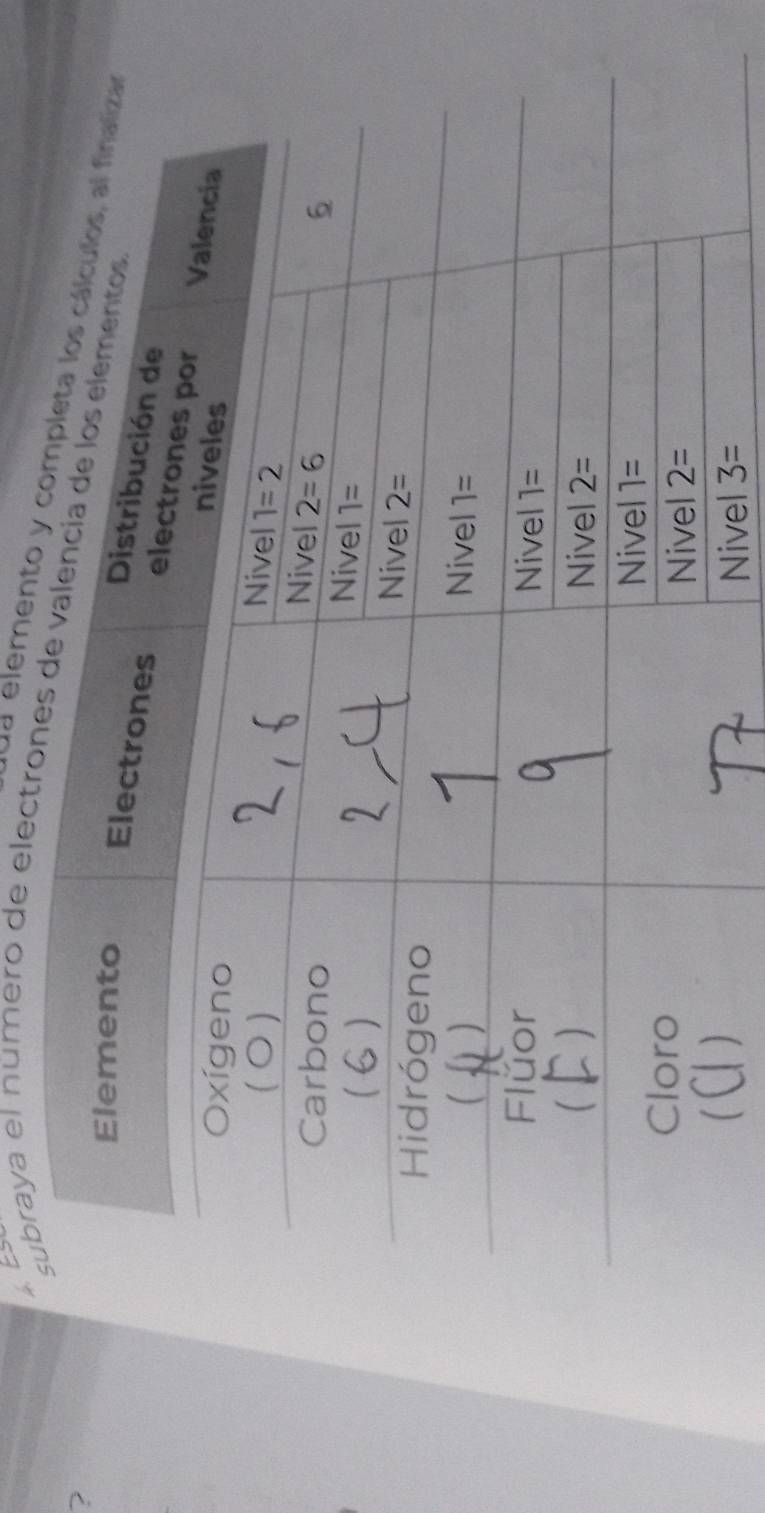 elemento y completa los cálculos, al finalizar
subraya el número de electrones de valencia de los elementos.
Elemento Electrones Distribución de electrones por niveles Valencia
Oxígeno (O) 2, 6 Nivel 1= 2
Nivel 2= 6 6
Carbono (6) 2,4 Nivel 1=
Nivel 2=
Hidrógeno (H) 1 Nivel 1=
Flúor (F) 9 Nivel 1=
Nivel 2=
Cloro (Cl) 17 Nivel 1=
Nivel 2=
Nivel 3=
?